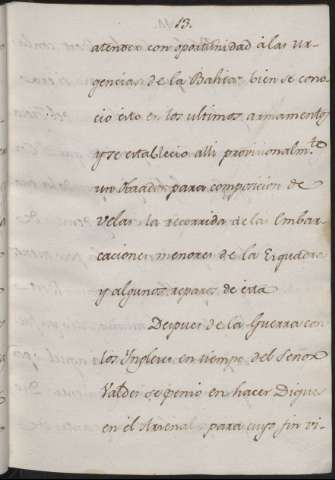 13.
atender con oportunidad à las ur-
gencias de la Bahia: bien se cono-
ció ésto en los ultimos armamentos
y se estableció alli provisionalm.te
un para composicion de
velas la recorrida de las Embar-
caciones menores de la Esquadra
y algunos repares de ésta
Despues de la Guerra con
los Ingleses en tiempo del Señor
Valdés se penso en hacer Diques
en el Arsenal para cuyo fin vi-